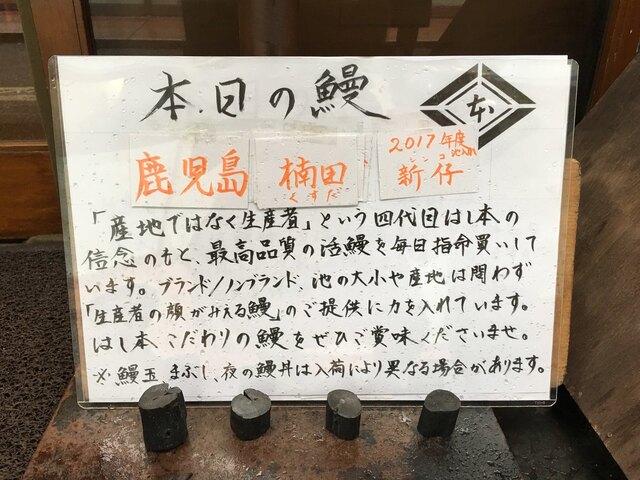 本日の鰻
本
鹿児島
楠田
くすだ
2017年度
池入れ
シンコ
新仔
「産地ではなく生産者」という四代目はし本の
信念のもと、最高品質の活鰻を毎日指命買いして
います。ブランド/ノンブランド、池の大小や産地は問わず
「生産者の顔がみえる鰻」のご提供に力を入れています。
はし本こだわりの鰻をぜひご賞味くださいませ。
※鰻玉まぶし、夜の鰻丼は入荷により異なる場合があります。